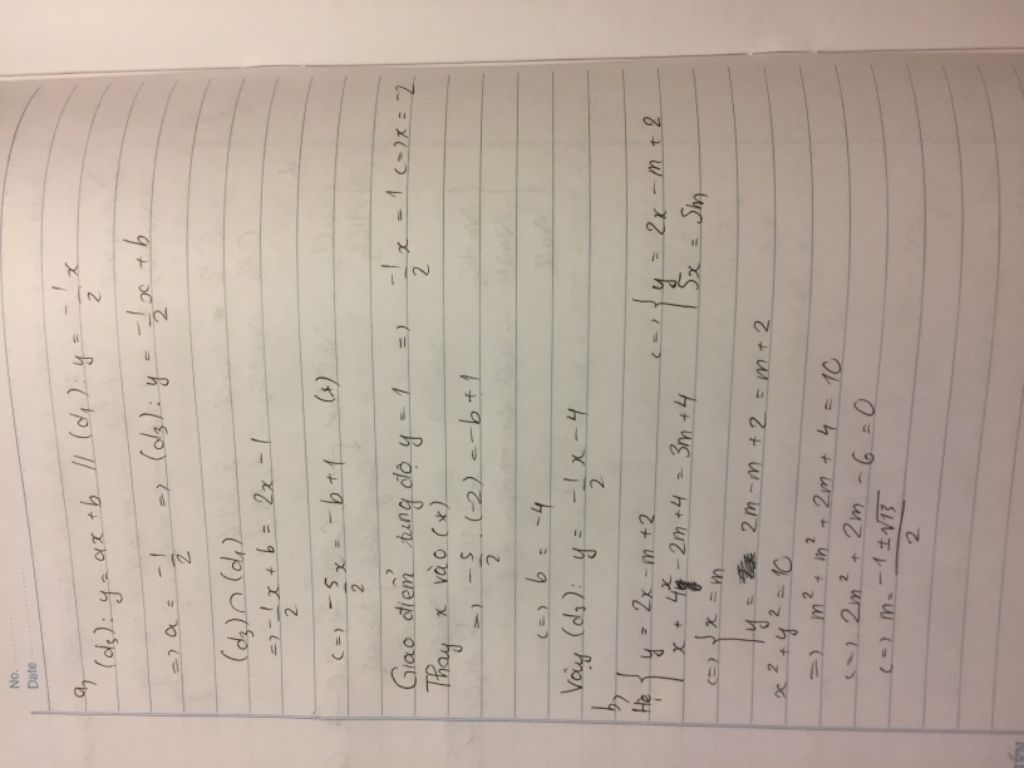 No. ..........
Date ..........
a, (d₃): y = ax + b // (d₁): y = -1/2 x
=) a = -1/2 =) (d₃): y = -1/2 x + b
(d₃) ∩ (d₁)
=) -1/2 x + b = 2x - 1
(=) -5/2 x = -b + 1 (*)
Giao điểm tung độ y = 1 =) -1/2 x = 1 (=) x = -2
Thay x vào (*)
=) -5/2 . (-2) = -b + 1
(=) b = -4
Vậy (d₃): y = -1/2 x - 4
b,
Hệ { y = 2x - m + 2 (=) { y = 2x - m + 2
x + 4x - 2m + 4 = 3m + 4 5x = 5m
(=) { x = m
y = 2m - m + 2 = m + 2
x² + y² = 10
=) m² + m² + 2m + 4 = 10
(=) 2m² + 2m - 6 = 0
(=) m = -1 ± √13 / 2